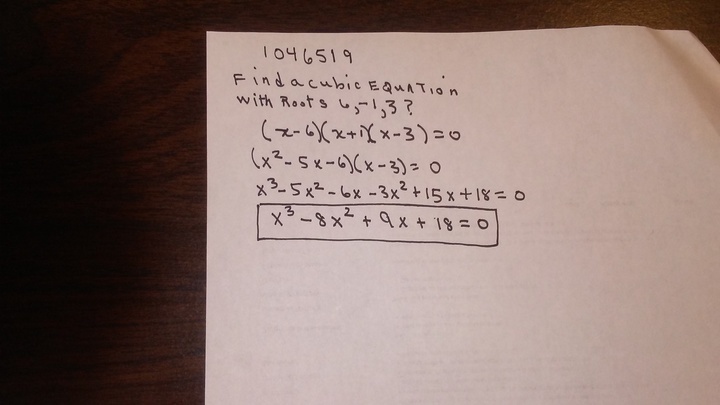 1046519
Find a cubic EQUATION
with Roots 6,-1,3?
(x-6)(x+1)(x-3)=0
(x²-5x-6)(x-3)=0
x³-5x²-6x-3x²+15x+18=0
x³-8x²+9x+18=0